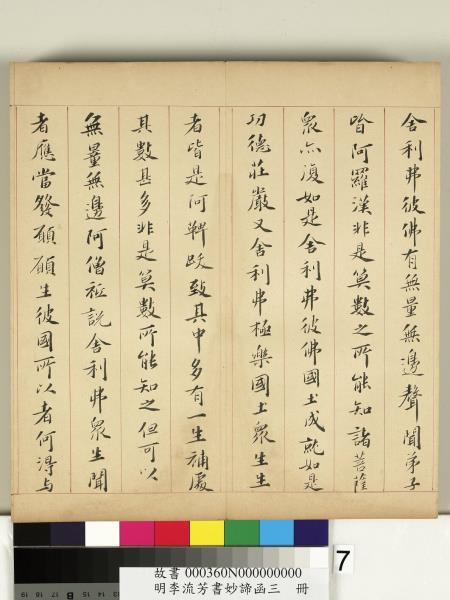 舍利弗彼佛有無量無邊聲聞弟子
皆阿羅漢非是算數之所能知諸菩薩
衆亦復如是舍利弗彼佛國土成就如是
功德莊嚴又舍利弗極樂國土衆生生
者皆是阿鞞跋致其中多有一生補處
其數甚多非是算數所能知之但可以
無量無邊阿僧祇說舍利弗衆生聞
者應當發願願生彼國所以者何得与
7
故書 000360N000000000
明李流芳書妙諦函三 冊